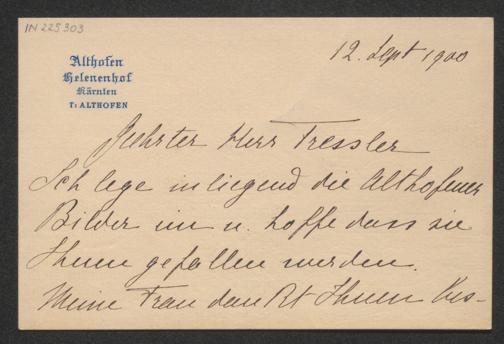 IN 225 303
12. Sept 1900
Althofen
Helenenhof
Kärnten
T: ALTHOFEN
Geehrter Herr Tressler
Ich lege inliegend die Althofener
Bilder im u. hoffe dass sie
Ihnen gefallen werden.
Meine Frau dankt Ihnen bes-